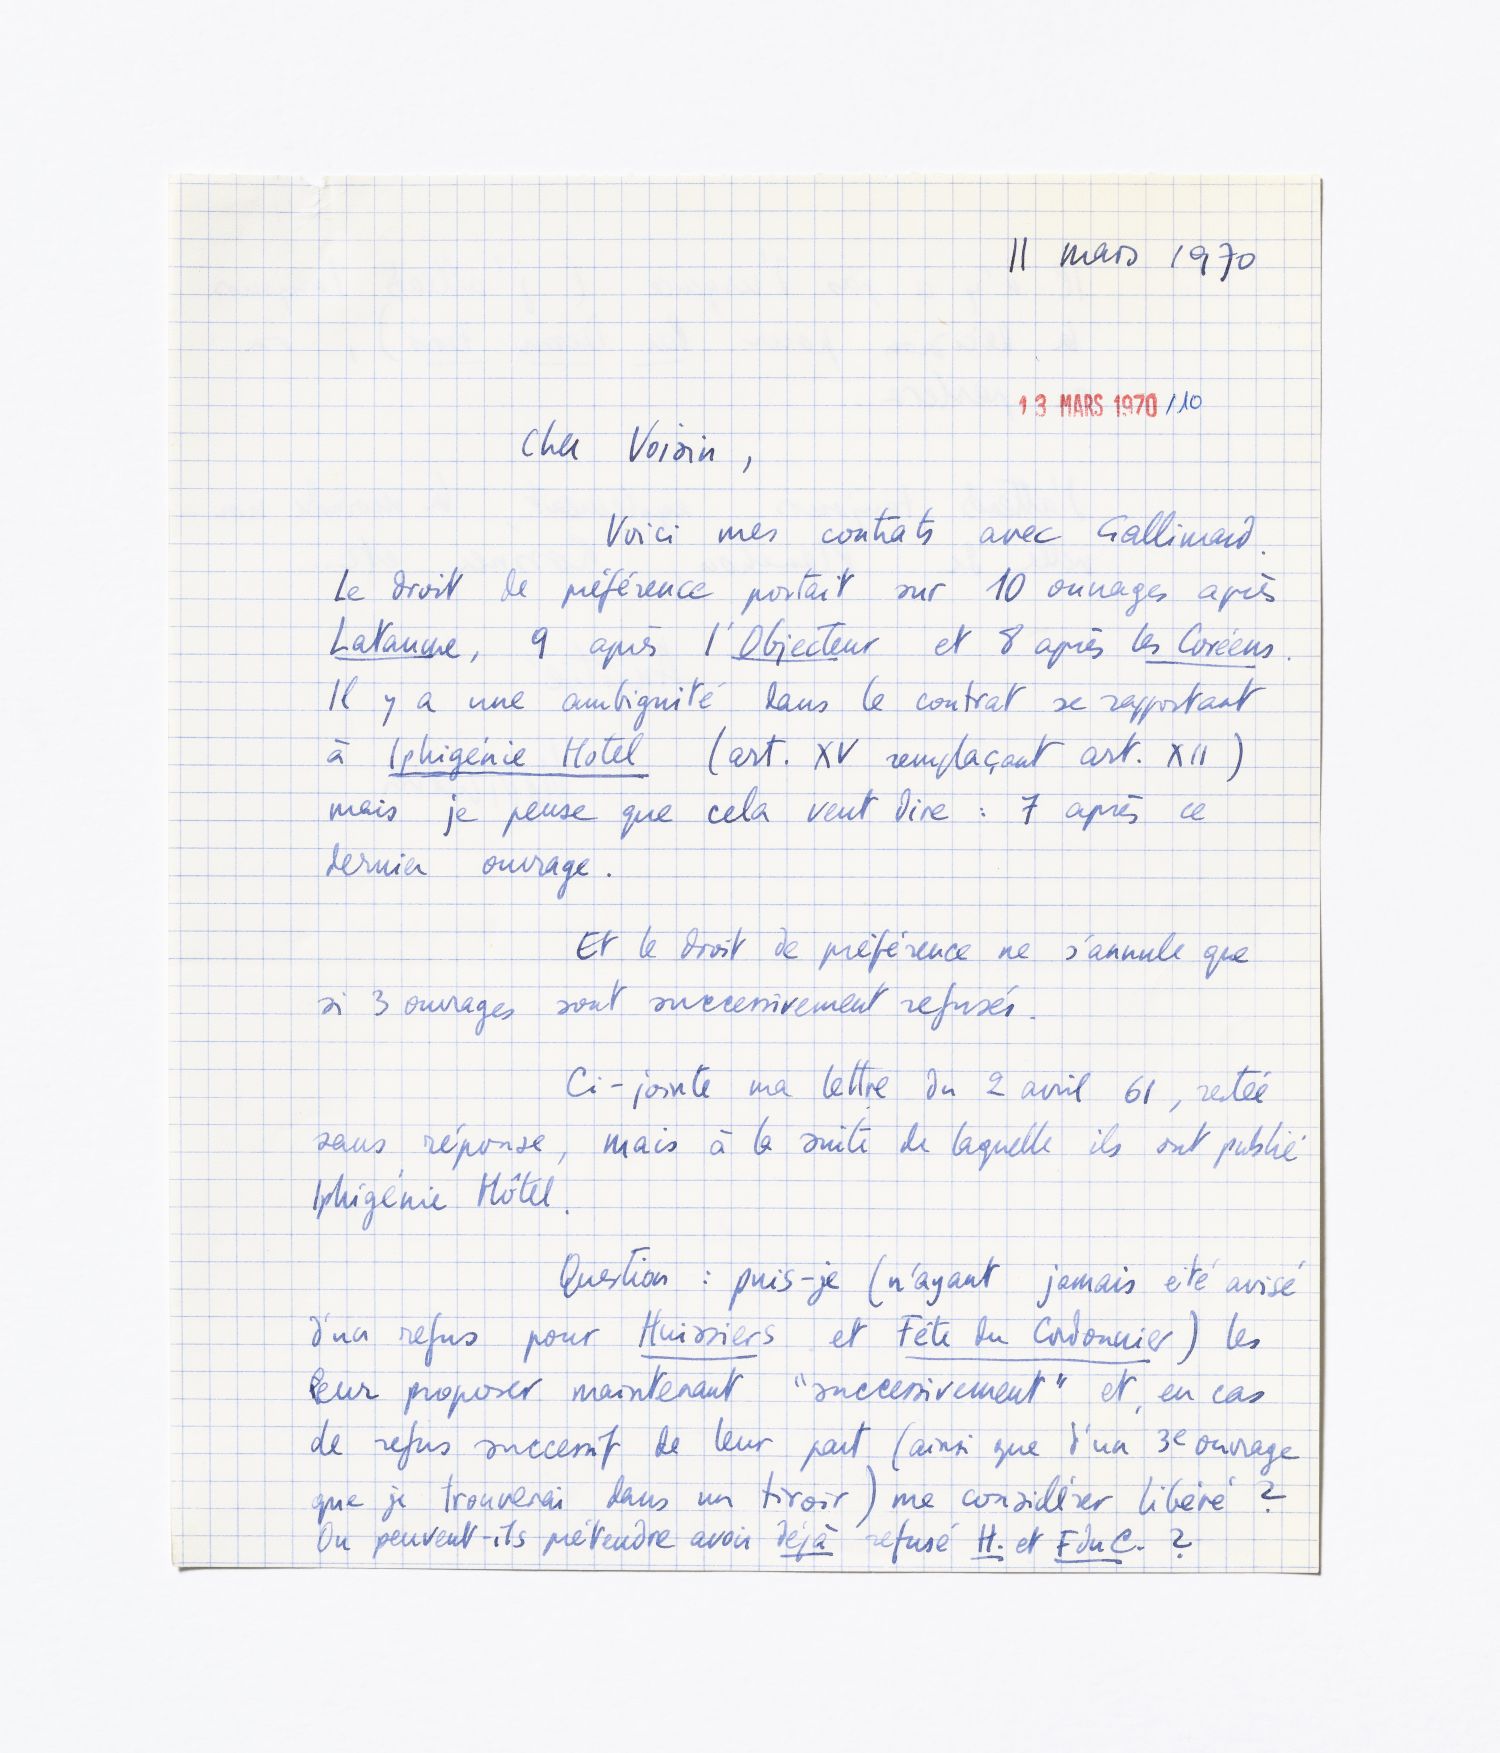 11 mars 1970
13 MARS 1970 /10
Cher Voisin,
Voici mes contrats avec Gallimard.
Le droit de préférence portait sur 10 ouvrages après
Lataume, 9 après l'Objecteur et 8 après les Coréens.
Il y a une ambiguité dans le contrat se rapportant
à Iphigénie Hotel (art. XV remplaçant art. XII)
mais je pense que cela veut dire : 7 après ce
dernier ouvrage.
Et le droit de préférence ne s'annule que
si 3 ouvrages sont successivement refusés.
Ci-jointe ma lettre du 2 avril 61, restée
sans réponse, mais à la suite de laquelle ils ont publié
Iphigénie Hôtel.
Question : puis-je (n'ayant jamais été avisé
d'un refus pour Huissiers et Fête du Cordonnier) les
leur proposer maintenant "successivement" et, en cas
de refus successif de leur part (ainsi que d'un 3e ouvrage
que je trouverai dans un tiroir) me considérer libéré ?
Ou peuvent-ils prétendre avoir déjà refusé H. et F du C. ?